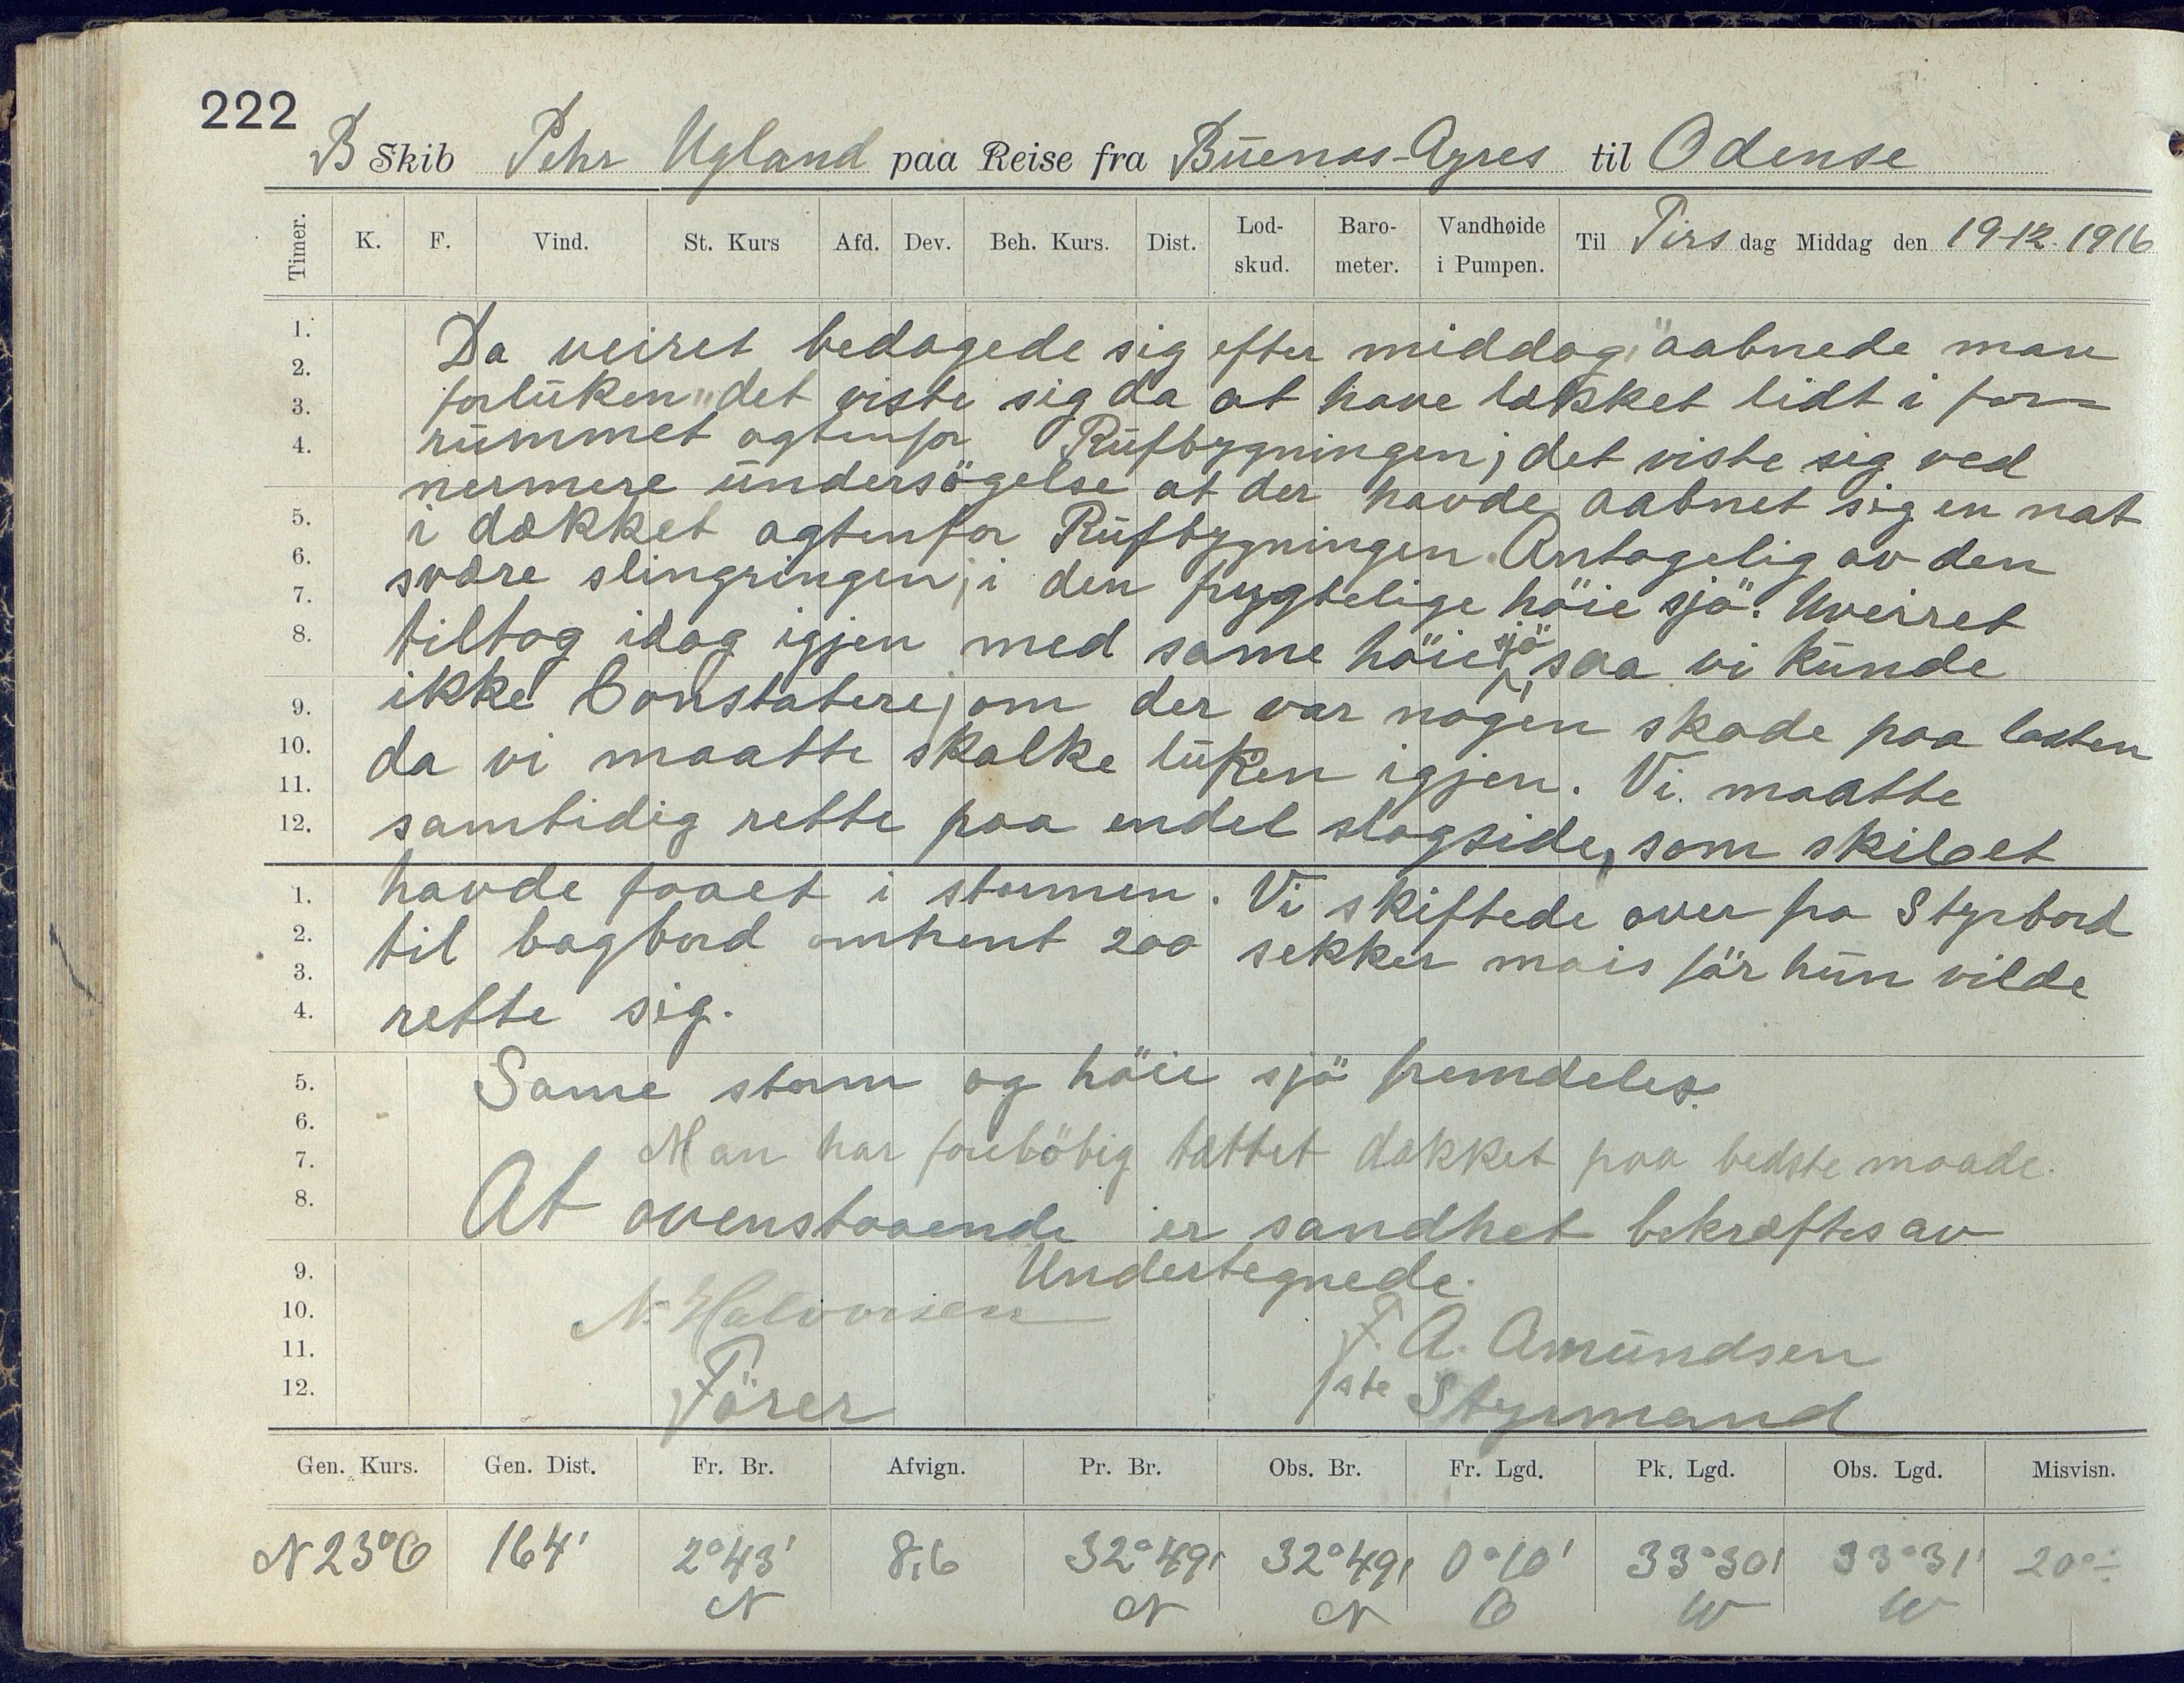 222
B Skib Pehr Ugland paa Reise fra Buenos-Ayres til Odense
Timer. K. F. Vind. St. Kurs Afd. Dev. Beh. Kurs. Dist. Lod-skud. Baro-meter. Vandhøide i Pumpen. Til Tirsdag Middag den 19-12-1916
1.
2.
3.
4.
5.
6.
7.
8.
9.
10.
11.
12.
1.
2.
3.
4.
5.
6.
7.
8.
9.
10.
11.
12.
Da veiret bedagede sig efter middag, aabnede man
forluken, det viste sig da at have lækket lidt i for=
rummet agtenfor Rufbygningen; det viste sig ved
nermere undersögelse at der havde aabnet sig en nat
i dækket agtenfor Rufbygningen. Antagelig av den
svære slingringen, i den frygtelige höie sjö. Uveiret
tiltog idag igjen med same höie sjö, saa vi kunde
ikke Constatere, om der var nogen skade paa lasten
da vi maatte skalke luken igjen. Vi maatte
samtidig rette paa endel slagside, som skibet
havde faaet i stormen. Vi skiftede over fra Styrbord
til bagbord omtrent 200 sekker mais för hun vilde
rette sig.
Same storm og höie sjö fremdeles.
Man har forelöbig tættet dækket paa bedste maade.
At ovenstaaende er sandhet bekræftes av
Undertegnede.
N. Halvorsen
F. A. Amundsen
Förer
1ste Styrmand
Gen. Kurs. Gen. Dist. Fr. Br. Afvign. Pr. Br. Obs. Br. Fr. Lgd. Pk. Lgd. Obs. Lgd. Misvisn.
N 23° O 164' 2°43' N 8,6 32°49' N 32°49' N 0°10' O 33°30' W 33°31' W 20°÷